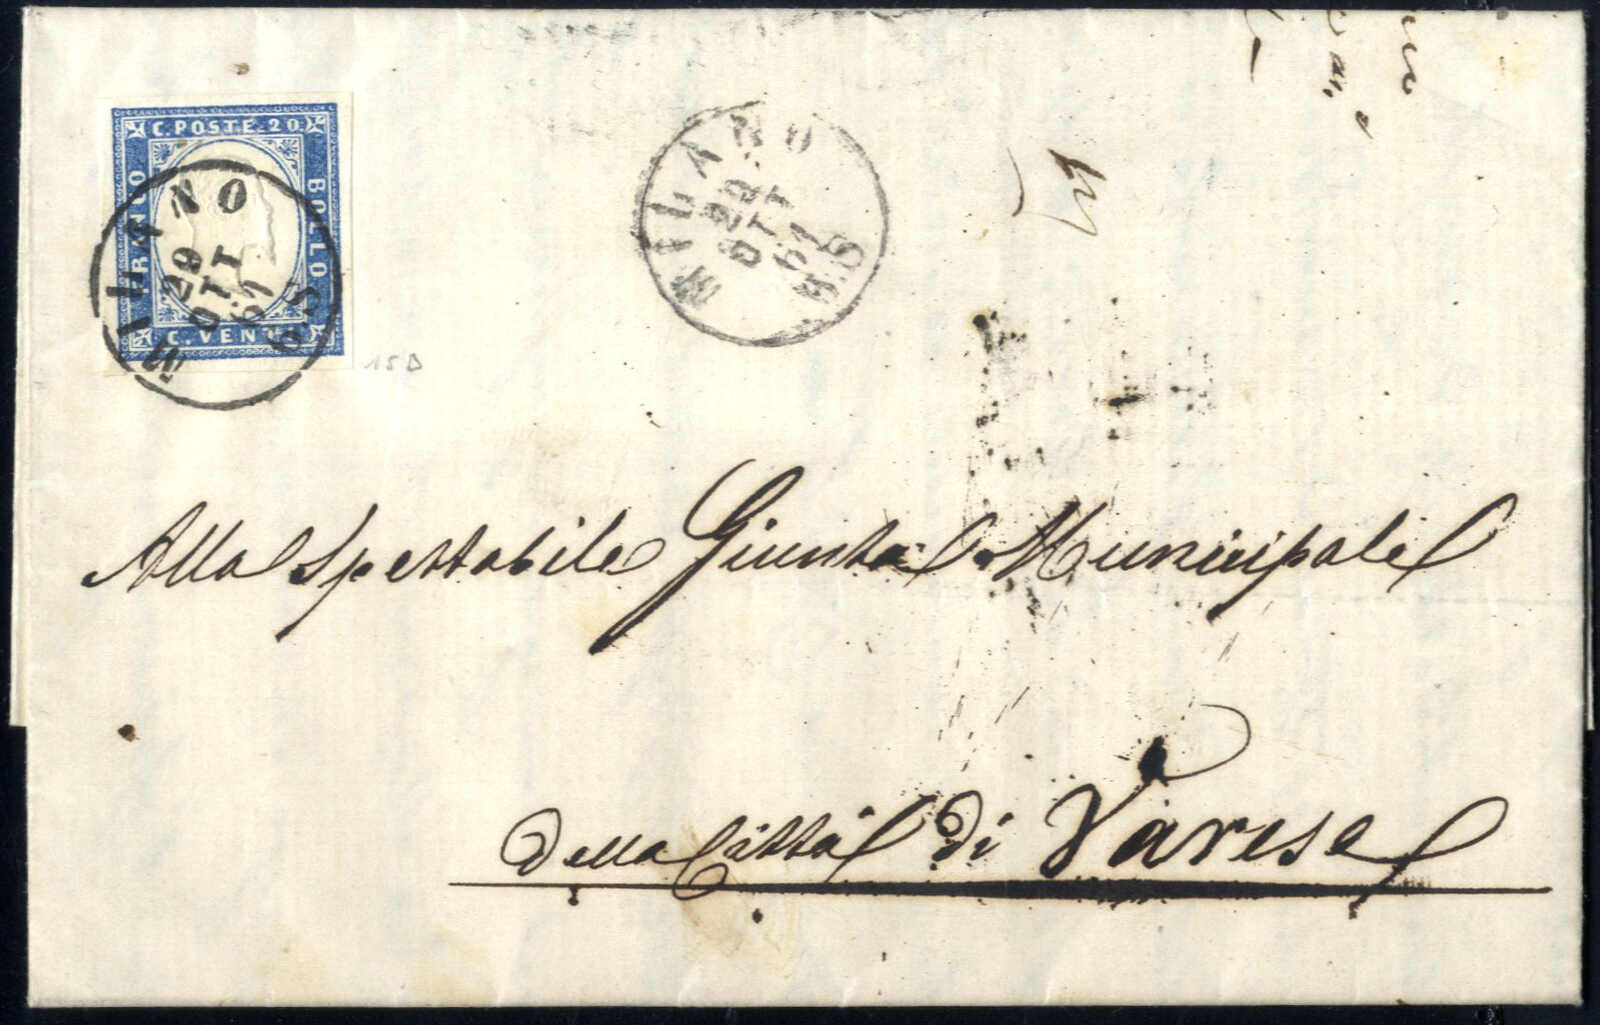 C. POSTE. 20
FRANCO
BOLLO
C. VENTI
MILANO
29
OTT
61
6.S
15D
MILANO
29
OTT
61
Alla Spettabile Giunta Municipale
della Città di Varese